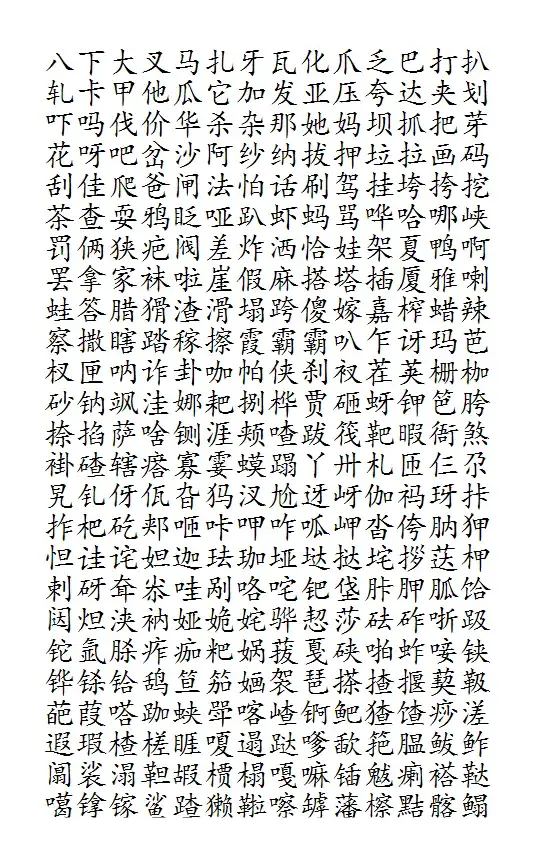 八下大叉马扎牙瓦化爪乏巴打扒
轧卡甲他瓜它加发亚压夸达夹划
吓吗伐价华杀杂那她妈坝抓把芽
花呀吧岔沙阿纱纳拔押垃拉画码
刮佳爬爸闸法怕话刷驾挂垮挎挖
茶查耍鸦眨哑趴虾蚂骂哗哈哪峡
罚俩狭疤阀差炸洒恰娃架夏鸭啊
罢拿家袜啦崖假麻搭塔插厦雅喇
蛙答腊猾渣滑塌跨傻嫁嘉榨蜡辣
察撒瞎踏稼擦霞霸霸叭乍讶玛芭
杈匣呐诈卦咖帕侠刹衩茬荚栅枷
砂钠飒洼娜耙捌桦贾砸蚜钾笆胯
捺掐萨啥铡涯颊喳跋筏靶暇衙煞
褂碴辖瘩寡霎蟆蹋丫卅札匝仨尕
旯钆伢佤旮犸汊尬迓岈伽祃玡拤
拃杷矻郏咂咔呷咋呱岬沓侉肭狎
怛诖诧妲迦珐珈垭垯挞垞拶荙柙
剌砑耷岽哇剐咯咤钯垡胩胛胍饸
闼炟浃衲娅姽姹骅恝莎砝砟哳趿
铊氩脎痄痂粑娲菝戛硖啪蚱唼铗
铧铩铪鸹笪笳婳袈琶搽揸揠葜靸
葩葭嗒跏蛱斝喀嵖锕鲃猹馇痧溠
遐瑕楂槎睚嗄遢跶嗲敔筢腽鲅鲊
阖裟溻靼嘏槚榻嘎嘛锸魃瘌褡鞑
噶镎镓鲨蹅獭鞡嚓罅藩檫黠髂鳎